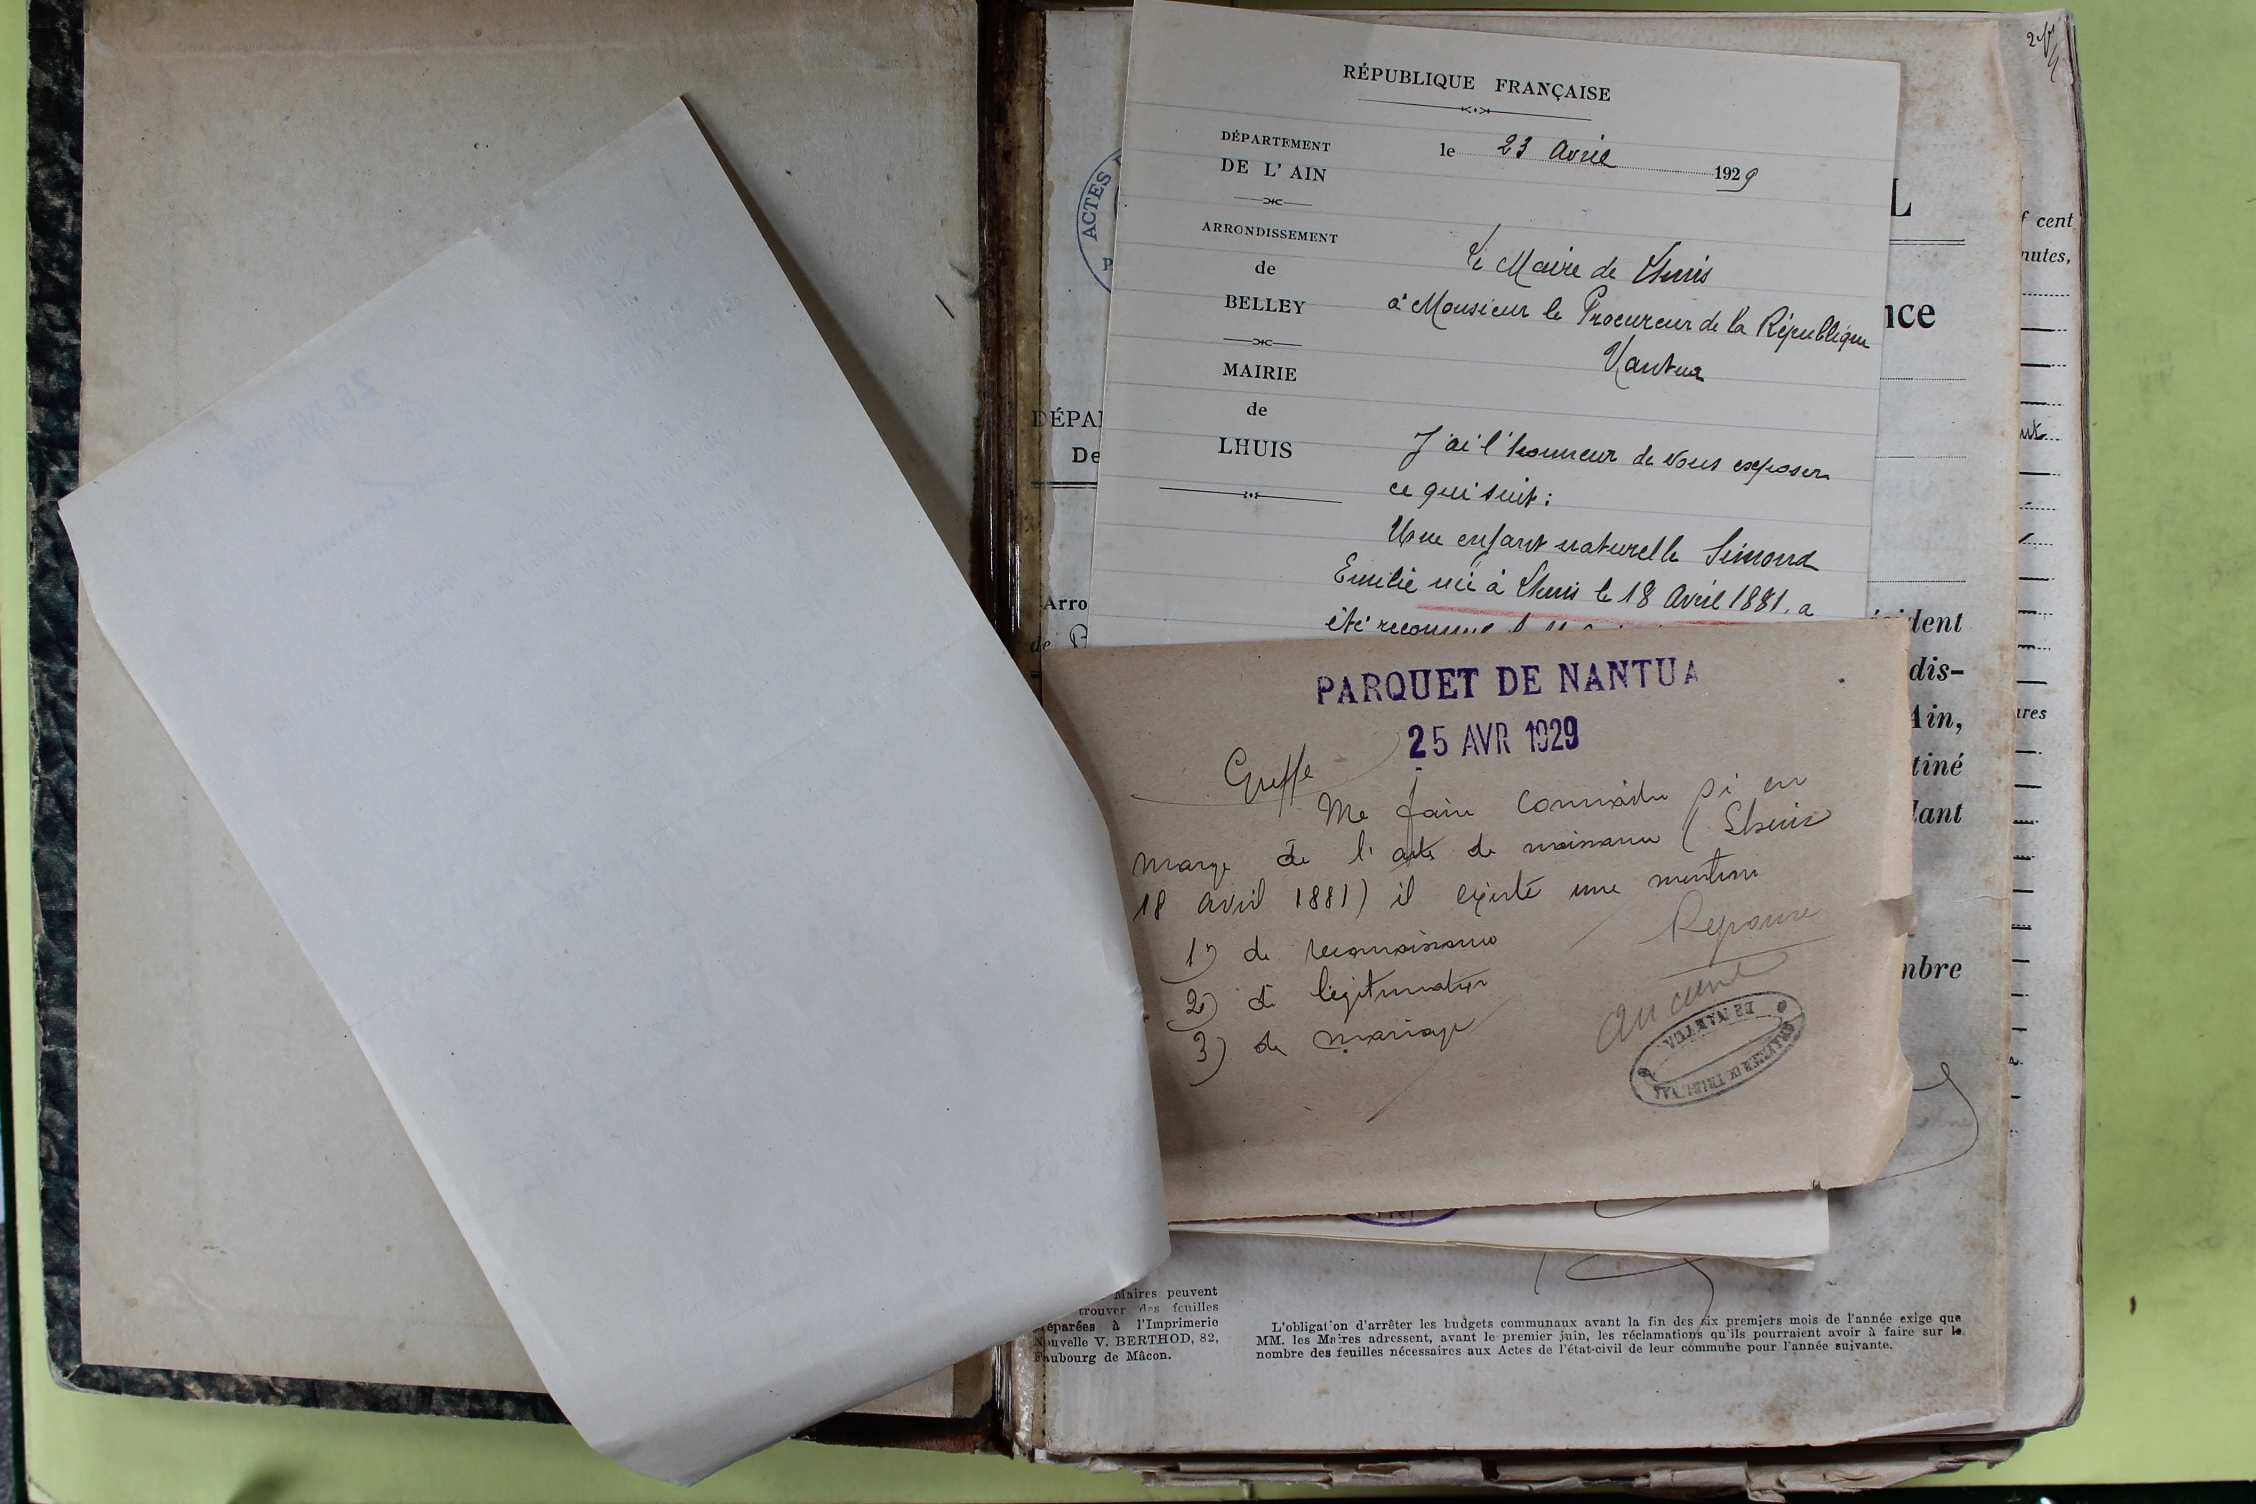 RÉPUBLIQUE FRANÇAISE
DÉPARTEMENT
DE L'AIN
le 23 Avril 1929
ARRONDISSEMENT
de
BELLEY
MAIRIE
de
LHUIS
Le Maire de Lhuis
à Monsieur le Procureur de la République
Nantua
J'ai l'honneur de vous exposer
ce qui suit :
Une enfant naturelle Simond
Emilie née à Lhuis le 18 Avril 1881, a
été reconnue
PARQUET DE NANTUA
25 AVR 1929
Greffe
Me faire connaître si en
marge de l'acte de naissance (Lhuis
18 avril 1881) il existe une mention
1) de reconnaissance
2) de légitimation
3) de mariage
Réponse
aucune
DE NANTUA
ACTES
P
L
f cent
nutes,
nce
DÉPA
De
Arro
de
ident
dis-
Ain,
tiné
dant
mbre
ures
Maires peuvent
trouver des feuilles
réparées à l'Imprimerie
Nouvelle V. BERTHOD, 82,
Faubourg de Mâcon.
L'obligation d'arrêter les budgets communaux avant la fin des six premiers mois de l'année exige que
MM. les Maires adressent, avant le premier juin, les réclamations qu'ils pourraient avoir à faire sur le
nombre des feuilles nécessaires aux Actes de l'état-civil de leur commune pour l'année suivante.